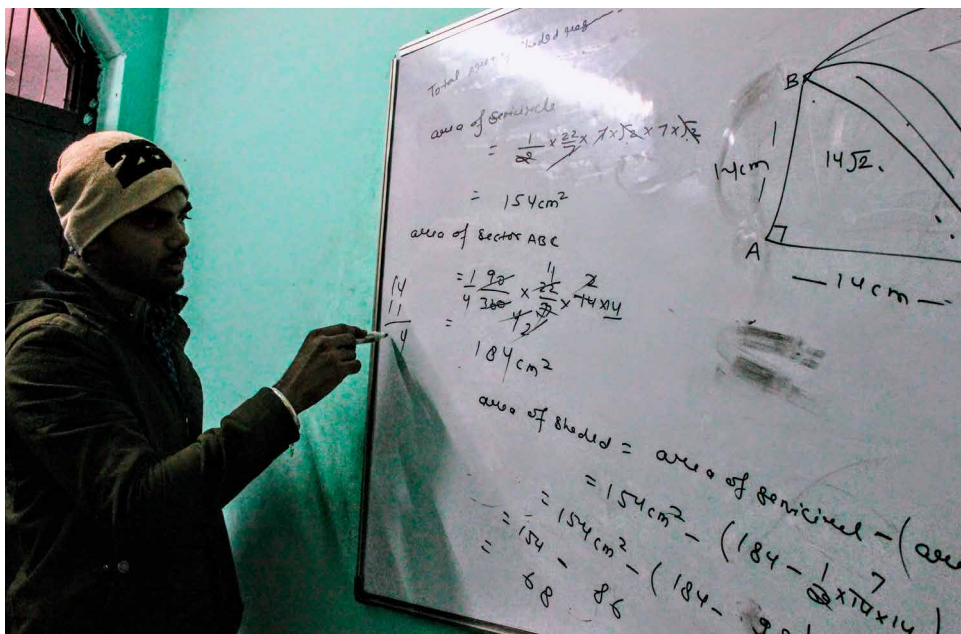 Total area of shaded
area of semicircle
= 1/2 × 22/7 × 7×√2 × 7×√2
= 154cm²
area of sector ABC
= 1/4 90/360 × 11 22/7 × 2 14×14
4 2
=
184cm²
14
11
4
area of shaded = area of semicircel - (area
= 154cm² - (184 - 1/2 × 7 14 × 14)
= 154cm² - (184 -
= 154 - 86
= 68
B
14cm
14√2.
A
14cm